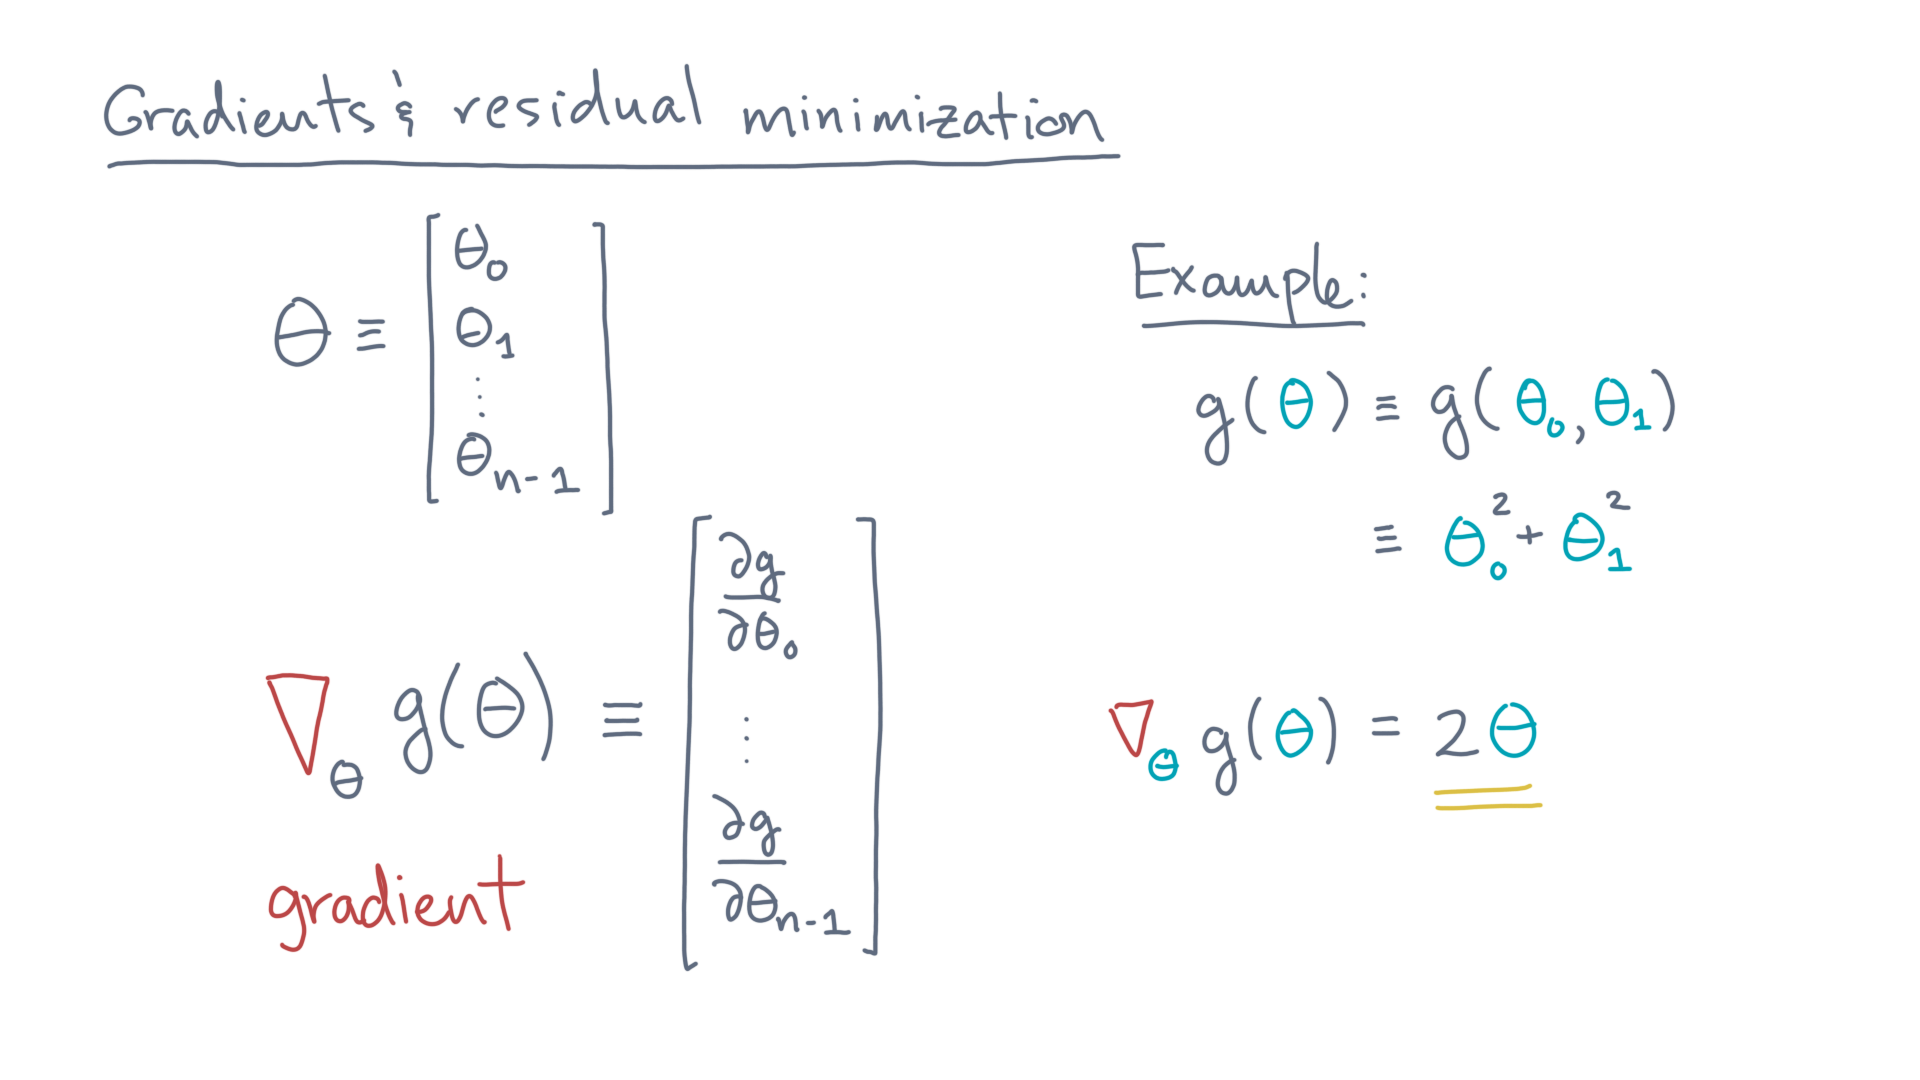 Gradients & residual minimization
θ ≡ [ θ₀
θ₁
⋮
θₙ₋₁ ]
∇_θ g(θ) ≡ [ ∂g/∂θ₀
⋮
∂g/∂θₙ₋₁ ]
gradient
Example:
g(θ) ≡ g(θ₀, θ₁)
≡ θ₀² + θ₁²
∇_θ g(θ) = 2θ